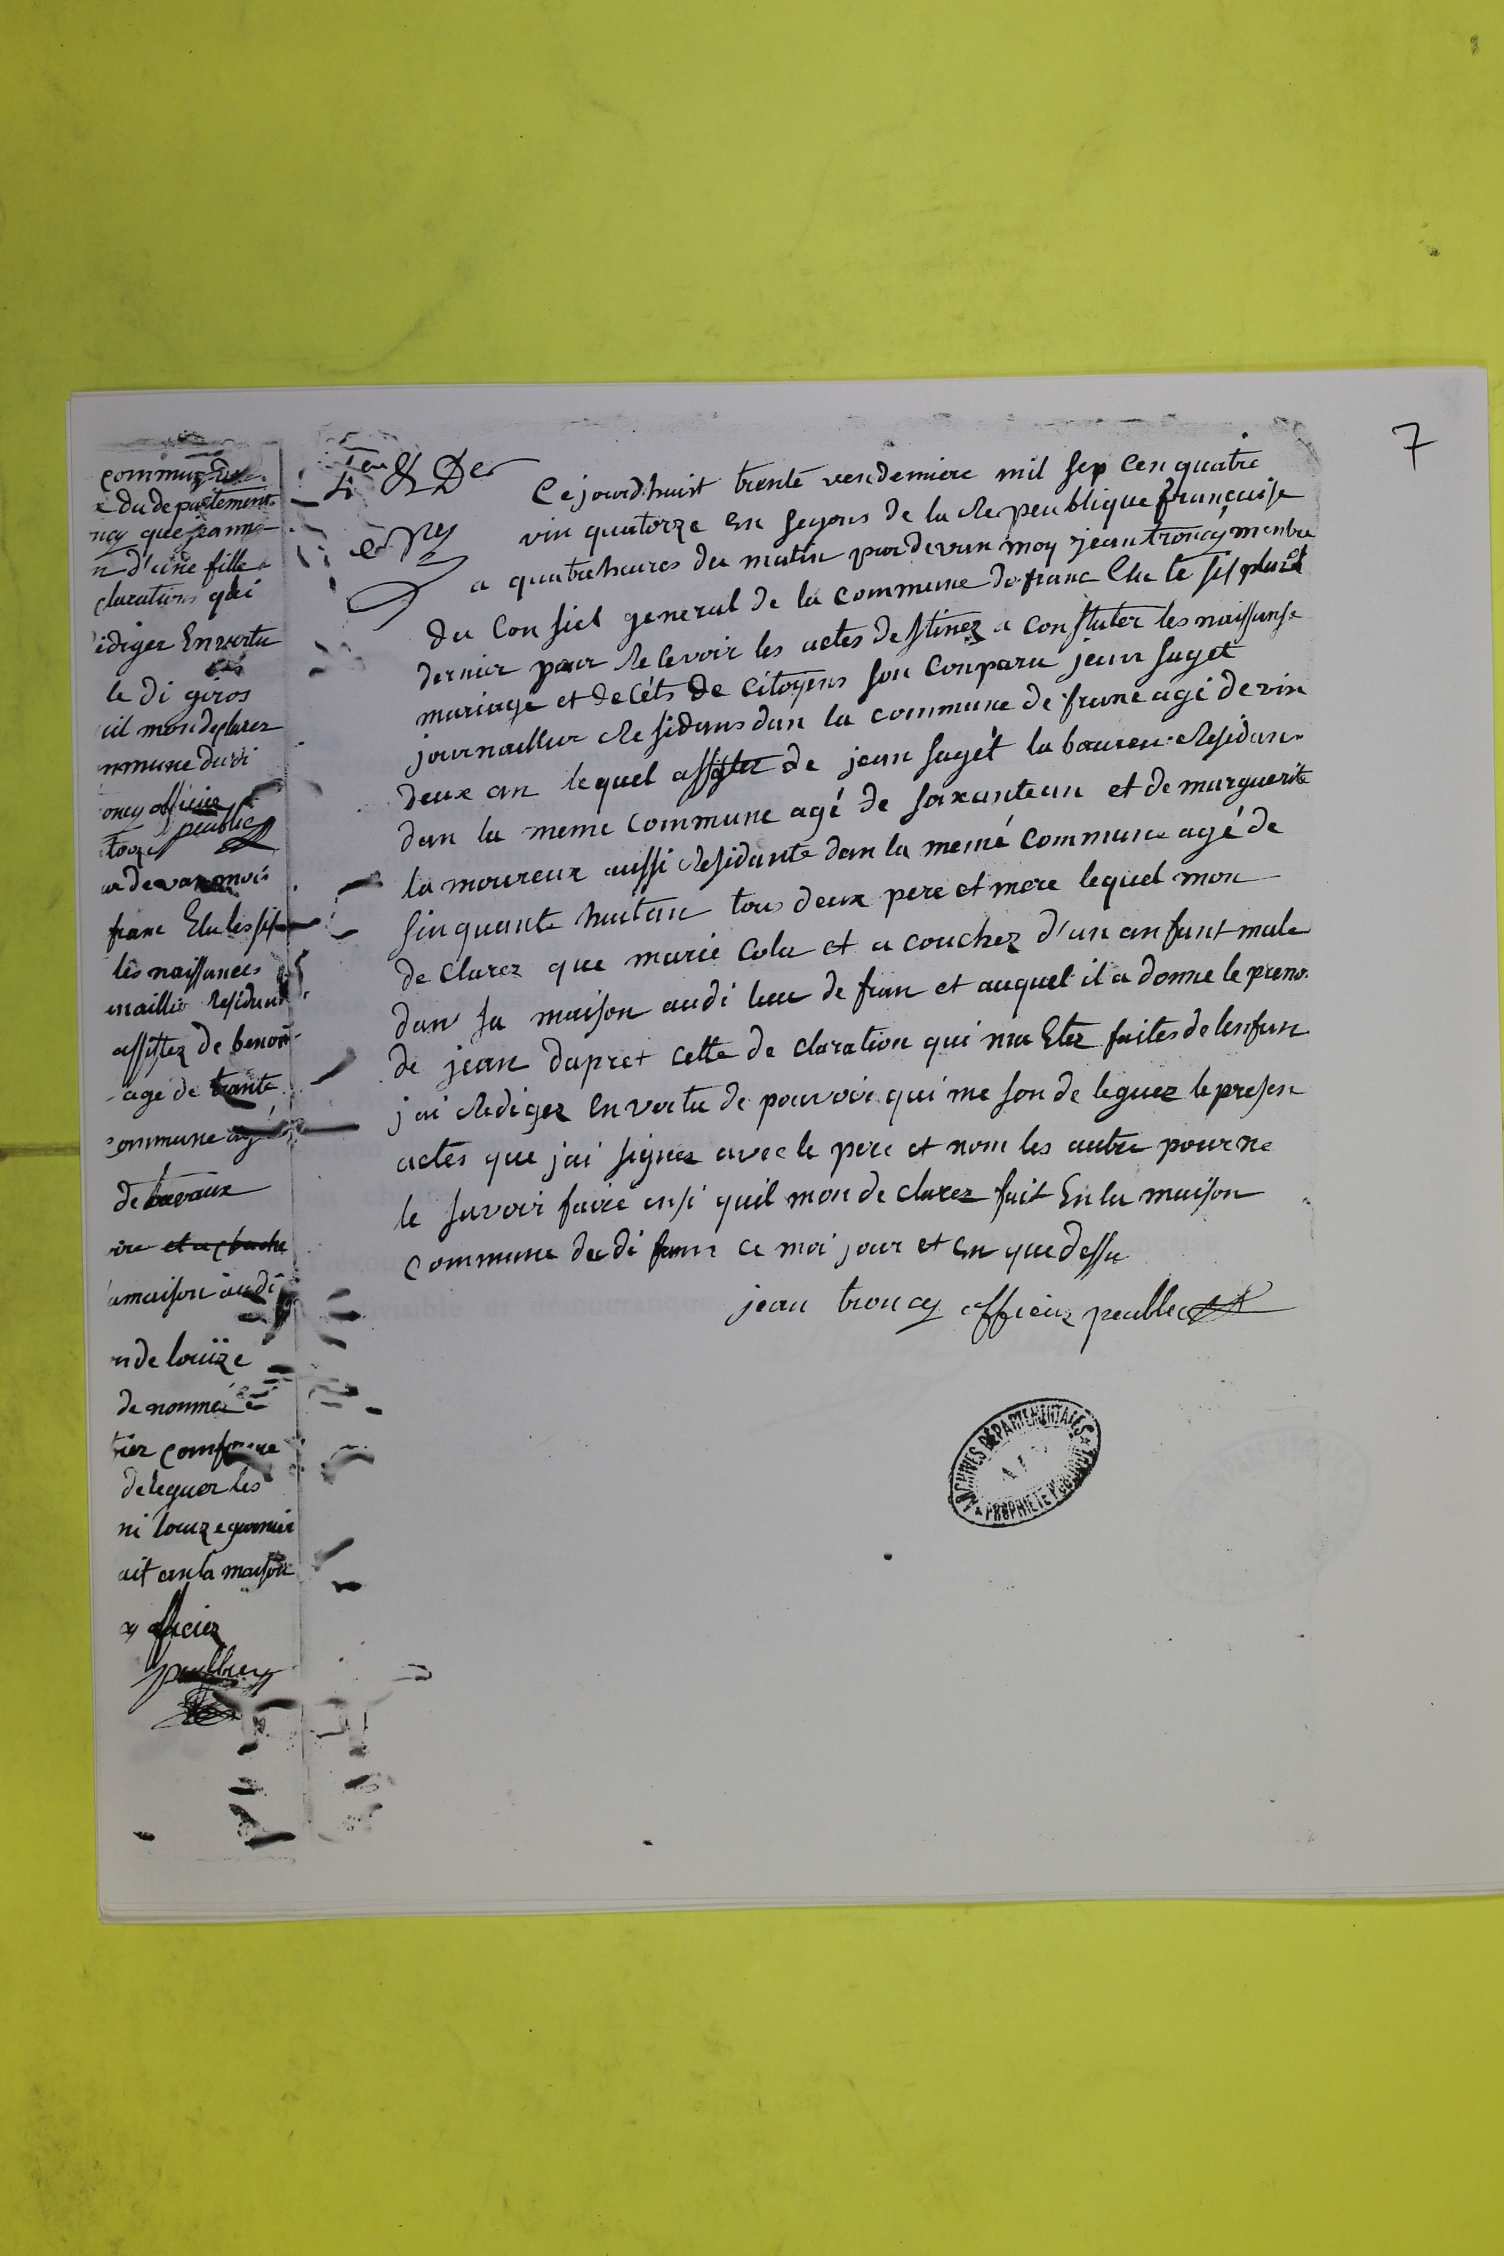 7
commune du
e du departement
ncy que janne
n d'une fille
clarations qui
rediger En vertu
le di giros
uil mon declarez
mmune dudi
oncy officiez
peublic
par devan moi
franc Elu les sis
les naissances
naillie Residant
assistez de benoi
agé de trante
commune agé
de travaux
et a couche
la maison audi
n de louïze
de nommée
deleguez les
ni louize garnier
ait en la maison
cy officiez
peublicq
4eu & Der
Ce jourdhuit trente vendemiere mil sep cen quatre
vin quatorze en segons de la Repeublique françaisse
a quatre heures du matin par devan moy jean troncy menbre
du Consiel general de la commune de franc Elu le sis pluiot
dernier pour Recevoir les actes destinez a constater les naissanse
mariage et decéts de citoyens son conparu jean saget
journallier Residans dan la commune de franc agé de vin
deux an lequel assistez de jean sagét laboureu Residan
dan la meme commune agé de soixantean et de marguerite
lamoureux aussi Residante dan la memé commune agé de
sinquante huitan tous deux pere et mere lequel mon
declarez que marie Cola et a couchez d'un anfant male
dan sa maison audi lieu de fran et auquel il a donne le preno.
de jean dapret cette declaration qui ma Etez faites de lenfan
j'ai Rediger en vertu de pouvoir qui me son deleguez le presen
actes que j'ai signez avec le pere et nom les autre pour ne
le savoir faire insi quil mon declarez fait En la maison
commune dudi franc ce moi jour et en que dessu
jean troncy officiez peublec
ARCHIVES DÉPARTEMENTALES
PROPRIÉTÉ PUBLIQUE